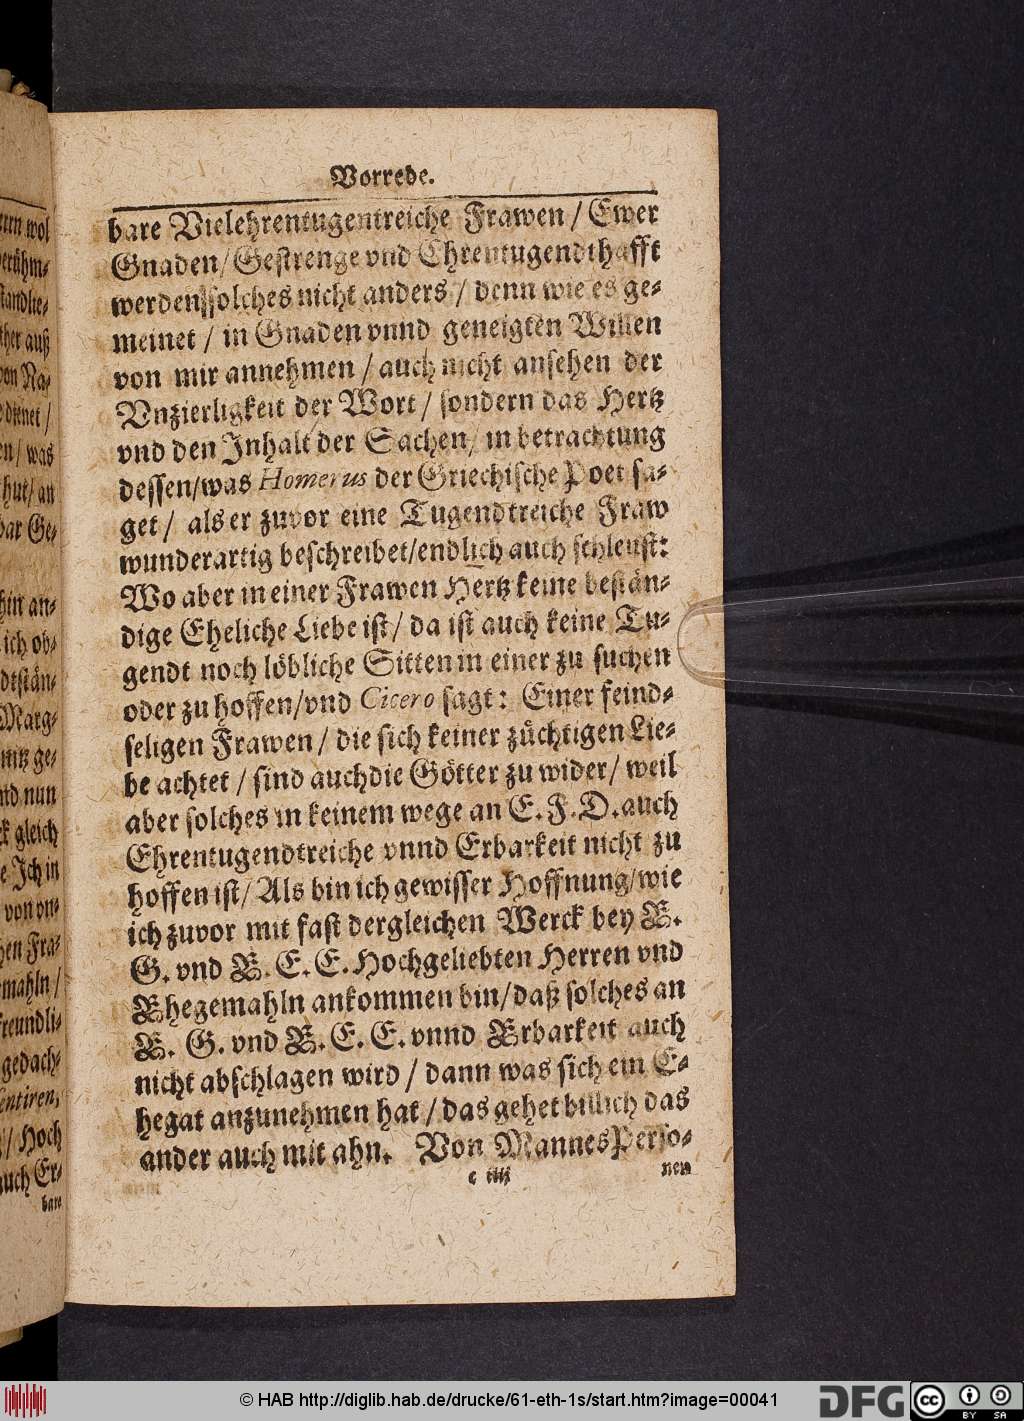 Vorrede.
bare Vielehrentugentreiche Frawen / Ewer
Gnaden/ Gestrenge vnd Ehrentugendthafft
werden solches nicht anders / denn wie es ge-
meinet / in Gnaden vnnd geneigten Willen
von mir annehmen / auch nicht ansehen der
Vnzierligkeit der Wort / sondern das Hertz
vnd den Inhalt der Sachen/ in betrachtung
dessen/was Homerus der Griechische Poet sa-
get / als er zuvor eine Tugendtreiche Fraw
wunderartig beschreibet/endlich auch schleust:
Wo aber in einer Frawen Hertz keine bestän-
dige Eheliche Liebe ist/ da ist auch keine Tu-
gendt noch löbliche Sitten in einer zu suchen
oder zu hoffen/vnd Cicero sagt: Einer feind-
seligen Frawen / die sich keiner züchtigen Lie-
be achtet / sind auch die Götter zu wider/ weil
aber solches in keinem wege an E. F. D. auch
Ehrentugendtreiche vnnd Erbarkeit nicht zu
hoffen ist/ Als bin ich gewisser Hoffnung/wie
ich zuvor mit fast dergleichen Werck bey E.
G. vnd E. E. E. Hochgeliebten Herren vnd
Ehegemahln ankommen bin/daß solches an
E. G. vnd E. E. E. vnnd Erbarkeit auch
nicht abschlagen wird / dann was sich ein E-
hegat anzunehmen hat / das gehet billich das
ander auch mit ahn. Von Mannes Perso-
c iiij nen
tern wol
berühm-
standlie-
ther auß
von Na-
ddienet /
en/ was
hut/ an
bar Ge-
hin an-
ich ob-
dtstän-
Marg-
nitz ge-
nd nun
ck gleich
e Ich in
von vn-
hen Fra-
mahln /
freundli-
gedach-
sentiren,
/ Hoch
auch Er-
bare
© HAB http://diglib.hab.de/drucke/61-eth-1s/start.htm?image=00041
DFG
cc
BY SA